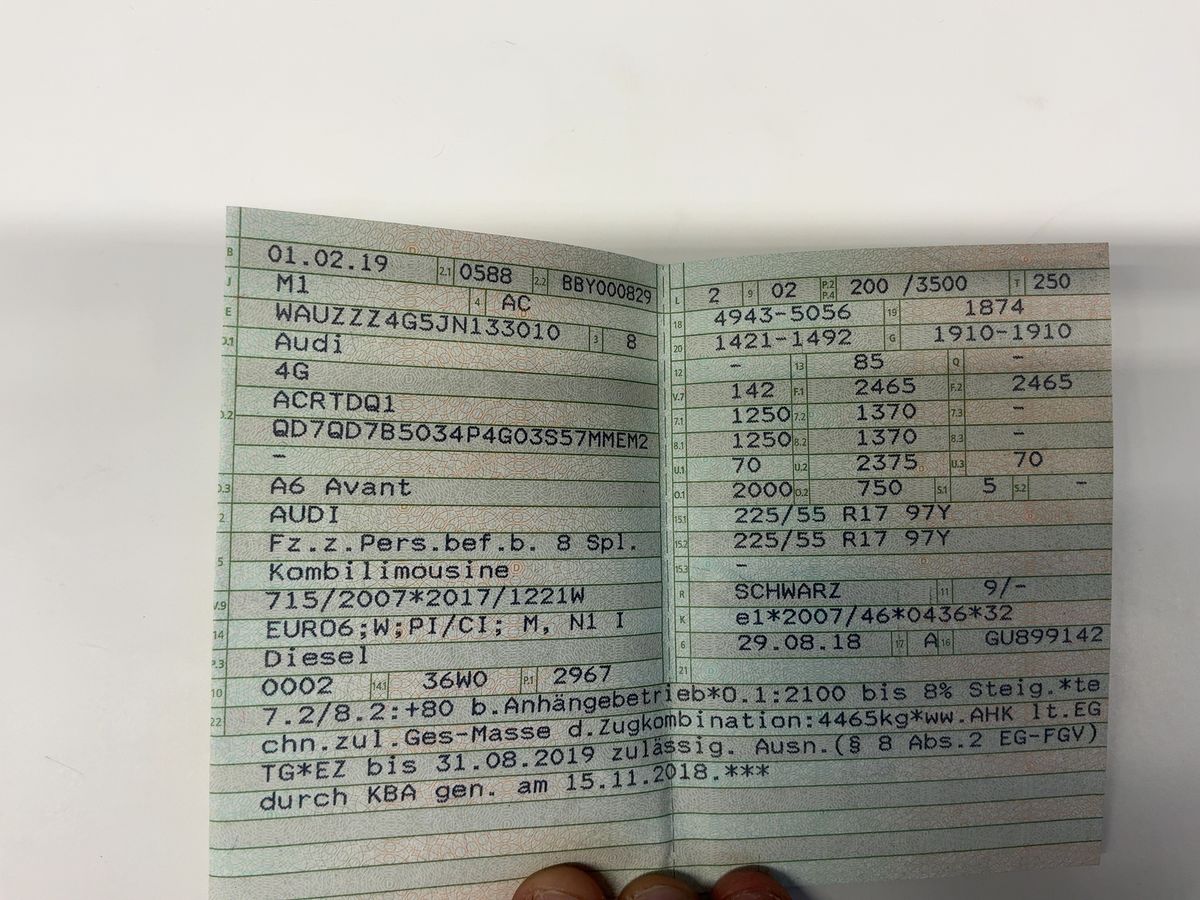 B 01.02.19 2.1 0588 2.2 BBY000829
J M1 4 AC
E WAUZZZ4G5JN133010 3 8
D.1 Audi
4G
D.2 ACRTDQ1
QD7QD7B5034P4G03S57MMEM2
-
D.3 A6 Avant
2 AUDI
5 Fz.z.Pers.bef.b. 8 Spl.
Kombilimousine
V.9 715/2007*2017/1221W
14 EURO6;W;PI/CI; M, N1 I
P.3 Diesel
10 0002 14.1 36W0 P.1 2967
L 2 9 02 P.2 P.4 200 /3500 T 250
18 4943-5056 19 1874
20 1421-1492 G 1910-1910
12 - 13 85 Q -
V.7 142 F.1 2465 F.2 2465
7.1 1250 7.2 1370 7.3 -
8.1 1250 8.2 1370 8.3 -
U.1 70 U.2 2375 U.3 70
O.1 2000 O.2 750 S.1 5 S.2 -
15.1 225/55 R17 97Y
15.2 225/55 R17 97Y
15.3 -
R SCHWARZ 11 9/-
K e1*2007/46*0436*32
6 29.08.18 17 A 16 GU899142
21
22 7.2/8.2:+80 b.Anhängebetrieb*O.1:2100 bis 8% Steig.*te
chn.zul.Ges-Masse d.Zugkombination:4465kg*ww.AHK lt.EG
TG*EZ bis 31.08.2019 zulässig. Ausn.(§ 8 Abs.2 EG-FGV)
durch KBA gen. am 15.11.2018.***